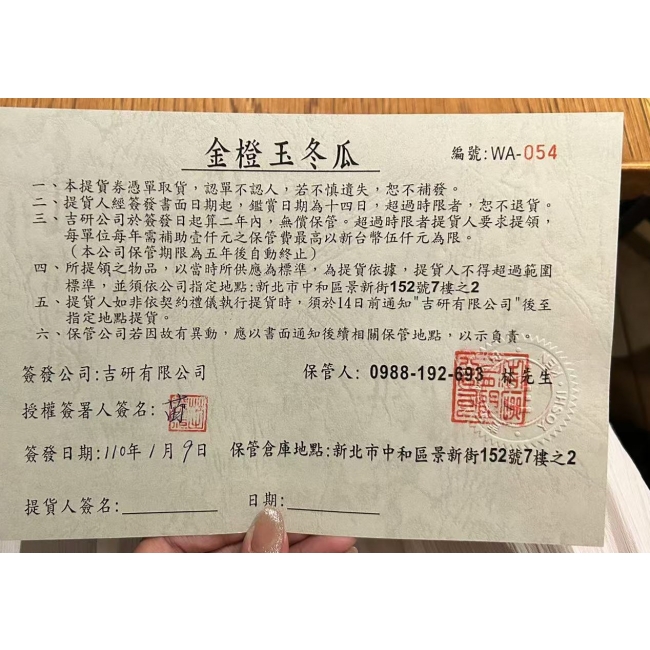 金橙玉冬瓜
編號:WA-054
一、本提貨券憑單取貨，認單不認人，若不慎遺失，恕不補發。
二、提貨人經簽發書面日期起，鑑賞日期為十四日，超過時限者，恕不退貨。
三、吉研公司於簽發日起算二年內，無償保管。超過時限者提貨人要求提領，
每單位每年需補助壹仟元之保管費最高以新台幣伍仟元為限。
（本公司保管期限為五年後自動終止）
四、所提領之物品，以當時所供應為標準，為提貨依據，提貨人不得超過範圍
標準，並須依公司指定地點:新北市中和區景新街152號7樓之2
五、提貨人如非依契約禮儀執行提貨時，須於14日前通知"吉研有限公司"後至
指定地點提貨。
六、保管公司若因故有異動，應以書面通知後續相關保管地點，以示負責。
簽發公司:吉研有限公司
保管人: 0988-192-693 林先生
授權簽署人簽名:
簽發日期:110年1月9日
保管倉庫地點:新北市中和區景新街152號7樓之2
提貨人簽名:
日期:
YOSHI